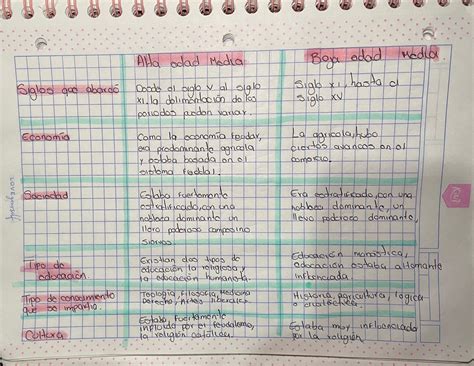 Alta edad Media
Baja edad media
Siglos que abarcó
Desde el siglo V al siglo
XI, la delimitación de los
periodos pueden variar.
Siglo XI, hasta el
siglo XV
Economía
Como la economía feudar,
era predominante agricola
y estaba basada en el
sistema feudal.
La agricola, hubo
ciertos avances en el
comercio.
Sociedad
Estaba fuertemente
estratificado, con una
nobleza dominante un
llevo poderoso campesino
siervos
Era estratificado, con una
nobleza dominante, un
llevo poderoso dominante,
Tipo de
educación
Existian dos tipos de
educación la religiosa y
la educación humanista.
Educación monastica,
educación estaba altamente
influenciada
Tipo de conocimiento
que se impartio.
Teologia, Filosofia, Medicina
Derecho, Artes liberales
Historia, agricultura, logica
o dialéctica.
Cultura
Estaba, fuertemente
influido por el feudalismo,
la religión catolica.
Estaba muy influenciado
por la religión